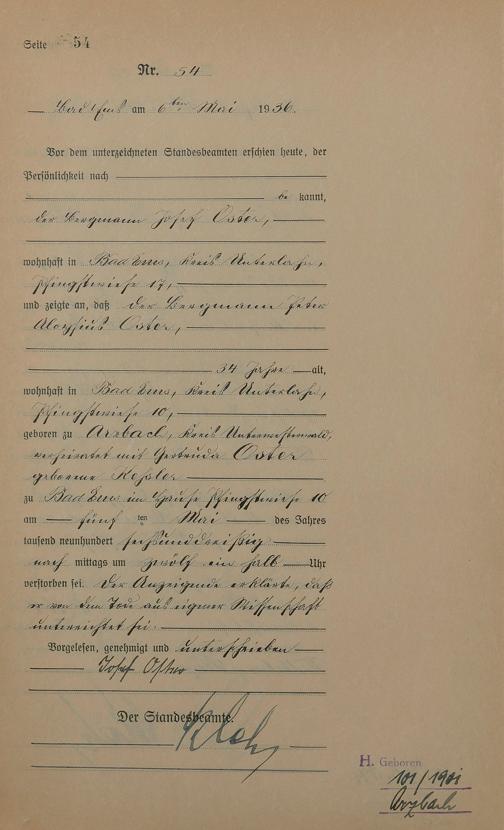 Seite 54
Nr. 54
Bad Ems am 6ten Mai 1936.
Vor dem unterzeichneten Standesbeamten erschien heute, der
Persönlichkeit nach
be kannt,
der Bergmann Josef Oster,
wohnhaft in Bad Ems, Kreis Unterlahn,
Pfingstwiese 17,
und zeigte an, daß der Bergmann Peter
Aloysius Oster,
34 Jahre alt,
wohnhaft in Bad Ems, Kreis Unterlahn,
Pfingstwiese 10,
geboren zu Arzbach, Kreis Unterwesterwald,
verheiratet mit Gertruda Oster
geborene Kessler
zu Bad Ems im Hause Pfingstwiese 10
am fünf ten Mai des Jahres
tausend neunhundert sechsunddreißig
nach mittags um zwölf ein halb Uhr
verstorben sei. Der Anzeigende erklärte, daß
er von dem Tode aus eigner Wissenschaft
unterrichtet sei.
Vorgelesen, genehmigt und unterschrieben
Josef Oster
Der Standesbeamte.
H. Geboren
101/1901
Arzbach